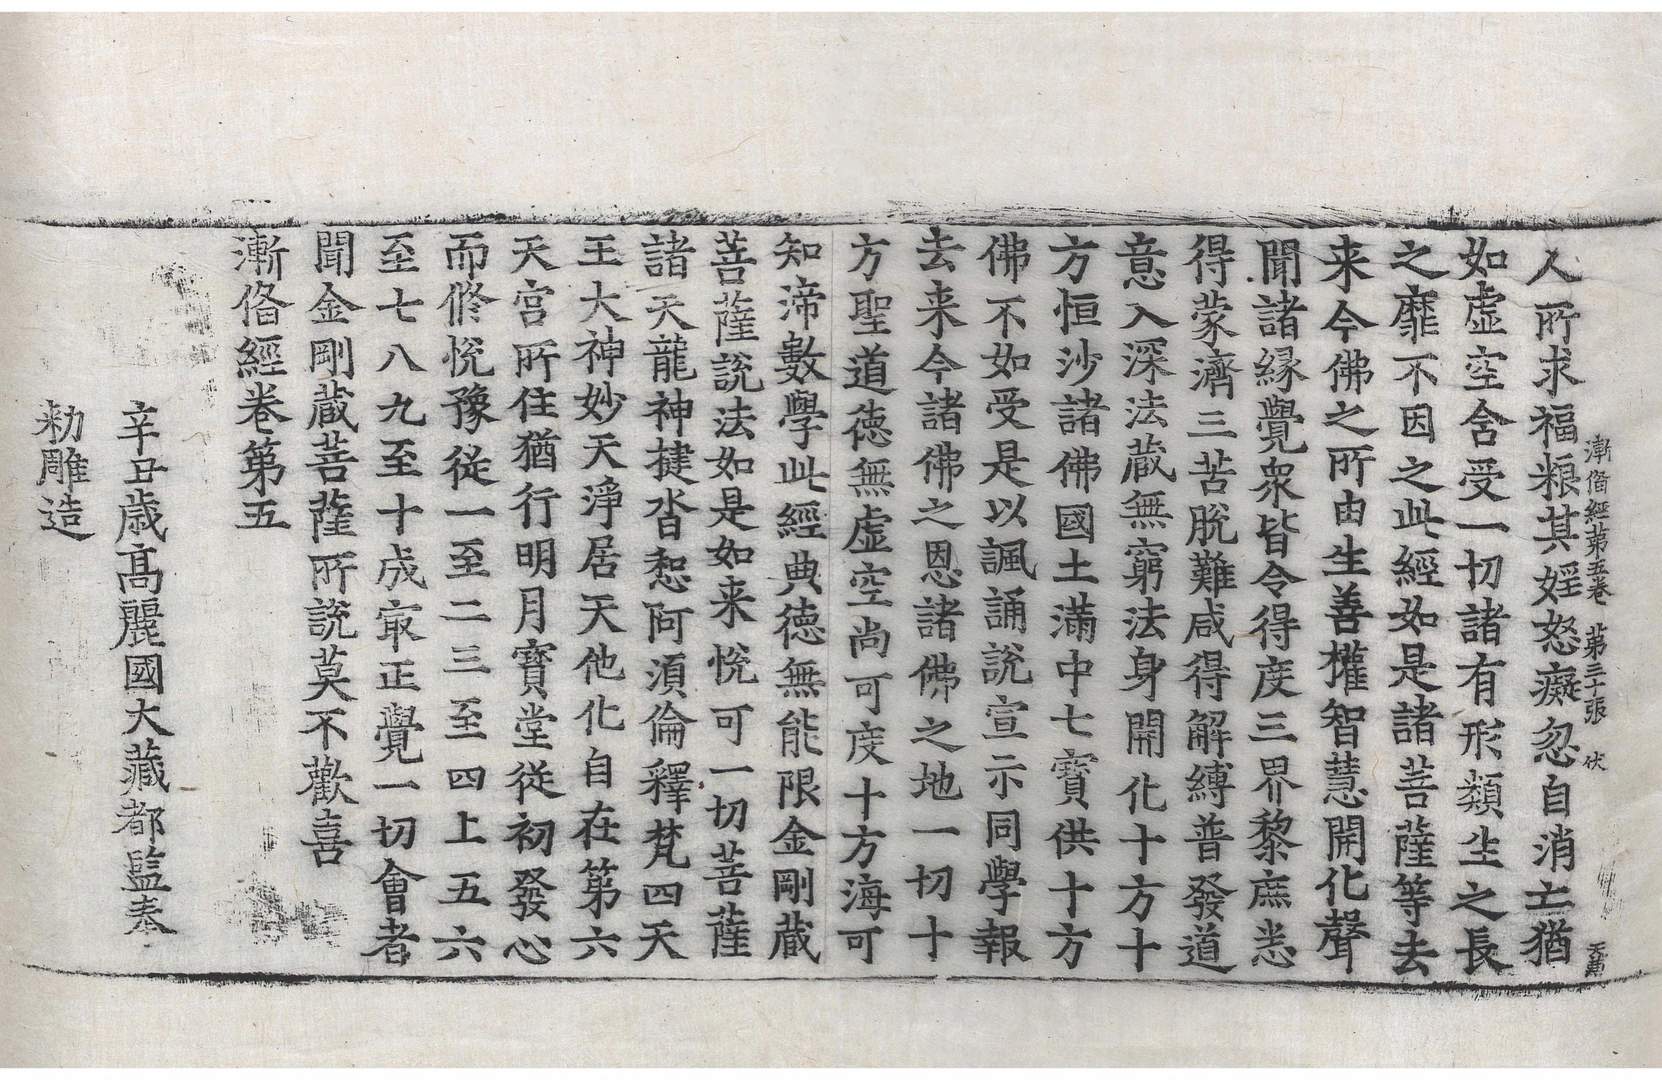 漸俻經第五卷 第三十張 伏
人所求福粮其婬怒癡忽自消亡猶
如虛空含受一切諸有形類生之長
之靡不因之此經如是諸菩薩等去
来今佛之所由生善權智慧開化聲
聞諸緣覺衆皆令得度三界黎庶悉
得蒙濟三苦脫難咸得解縛普發道
意入深法蔵無窮法身開化十方十
方恒沙諸佛國土滿中七寶供十方
佛不如受是以諷誦說宣示同學報
去来今諸佛之恩諸佛之地一切十
方聖道德無虛空尚可度十方海可
知渧數學此經典德無能限金剛蔵
菩薩說法如是如来悅可一切菩薩
諸天龍神揵沓惒阿湏倫釋梵四天
王大神妙天淨居天他化自在第六
天宮所住猶行明月寶堂從初發心
而修悅豫從一至二三至四上五六
至七八九至十成冣正覺一切會者
聞金剛蔵菩薩所說莫不歡喜
漸俻經卷第五
辛丑歳高麗國大藏都監奉
勑雕造